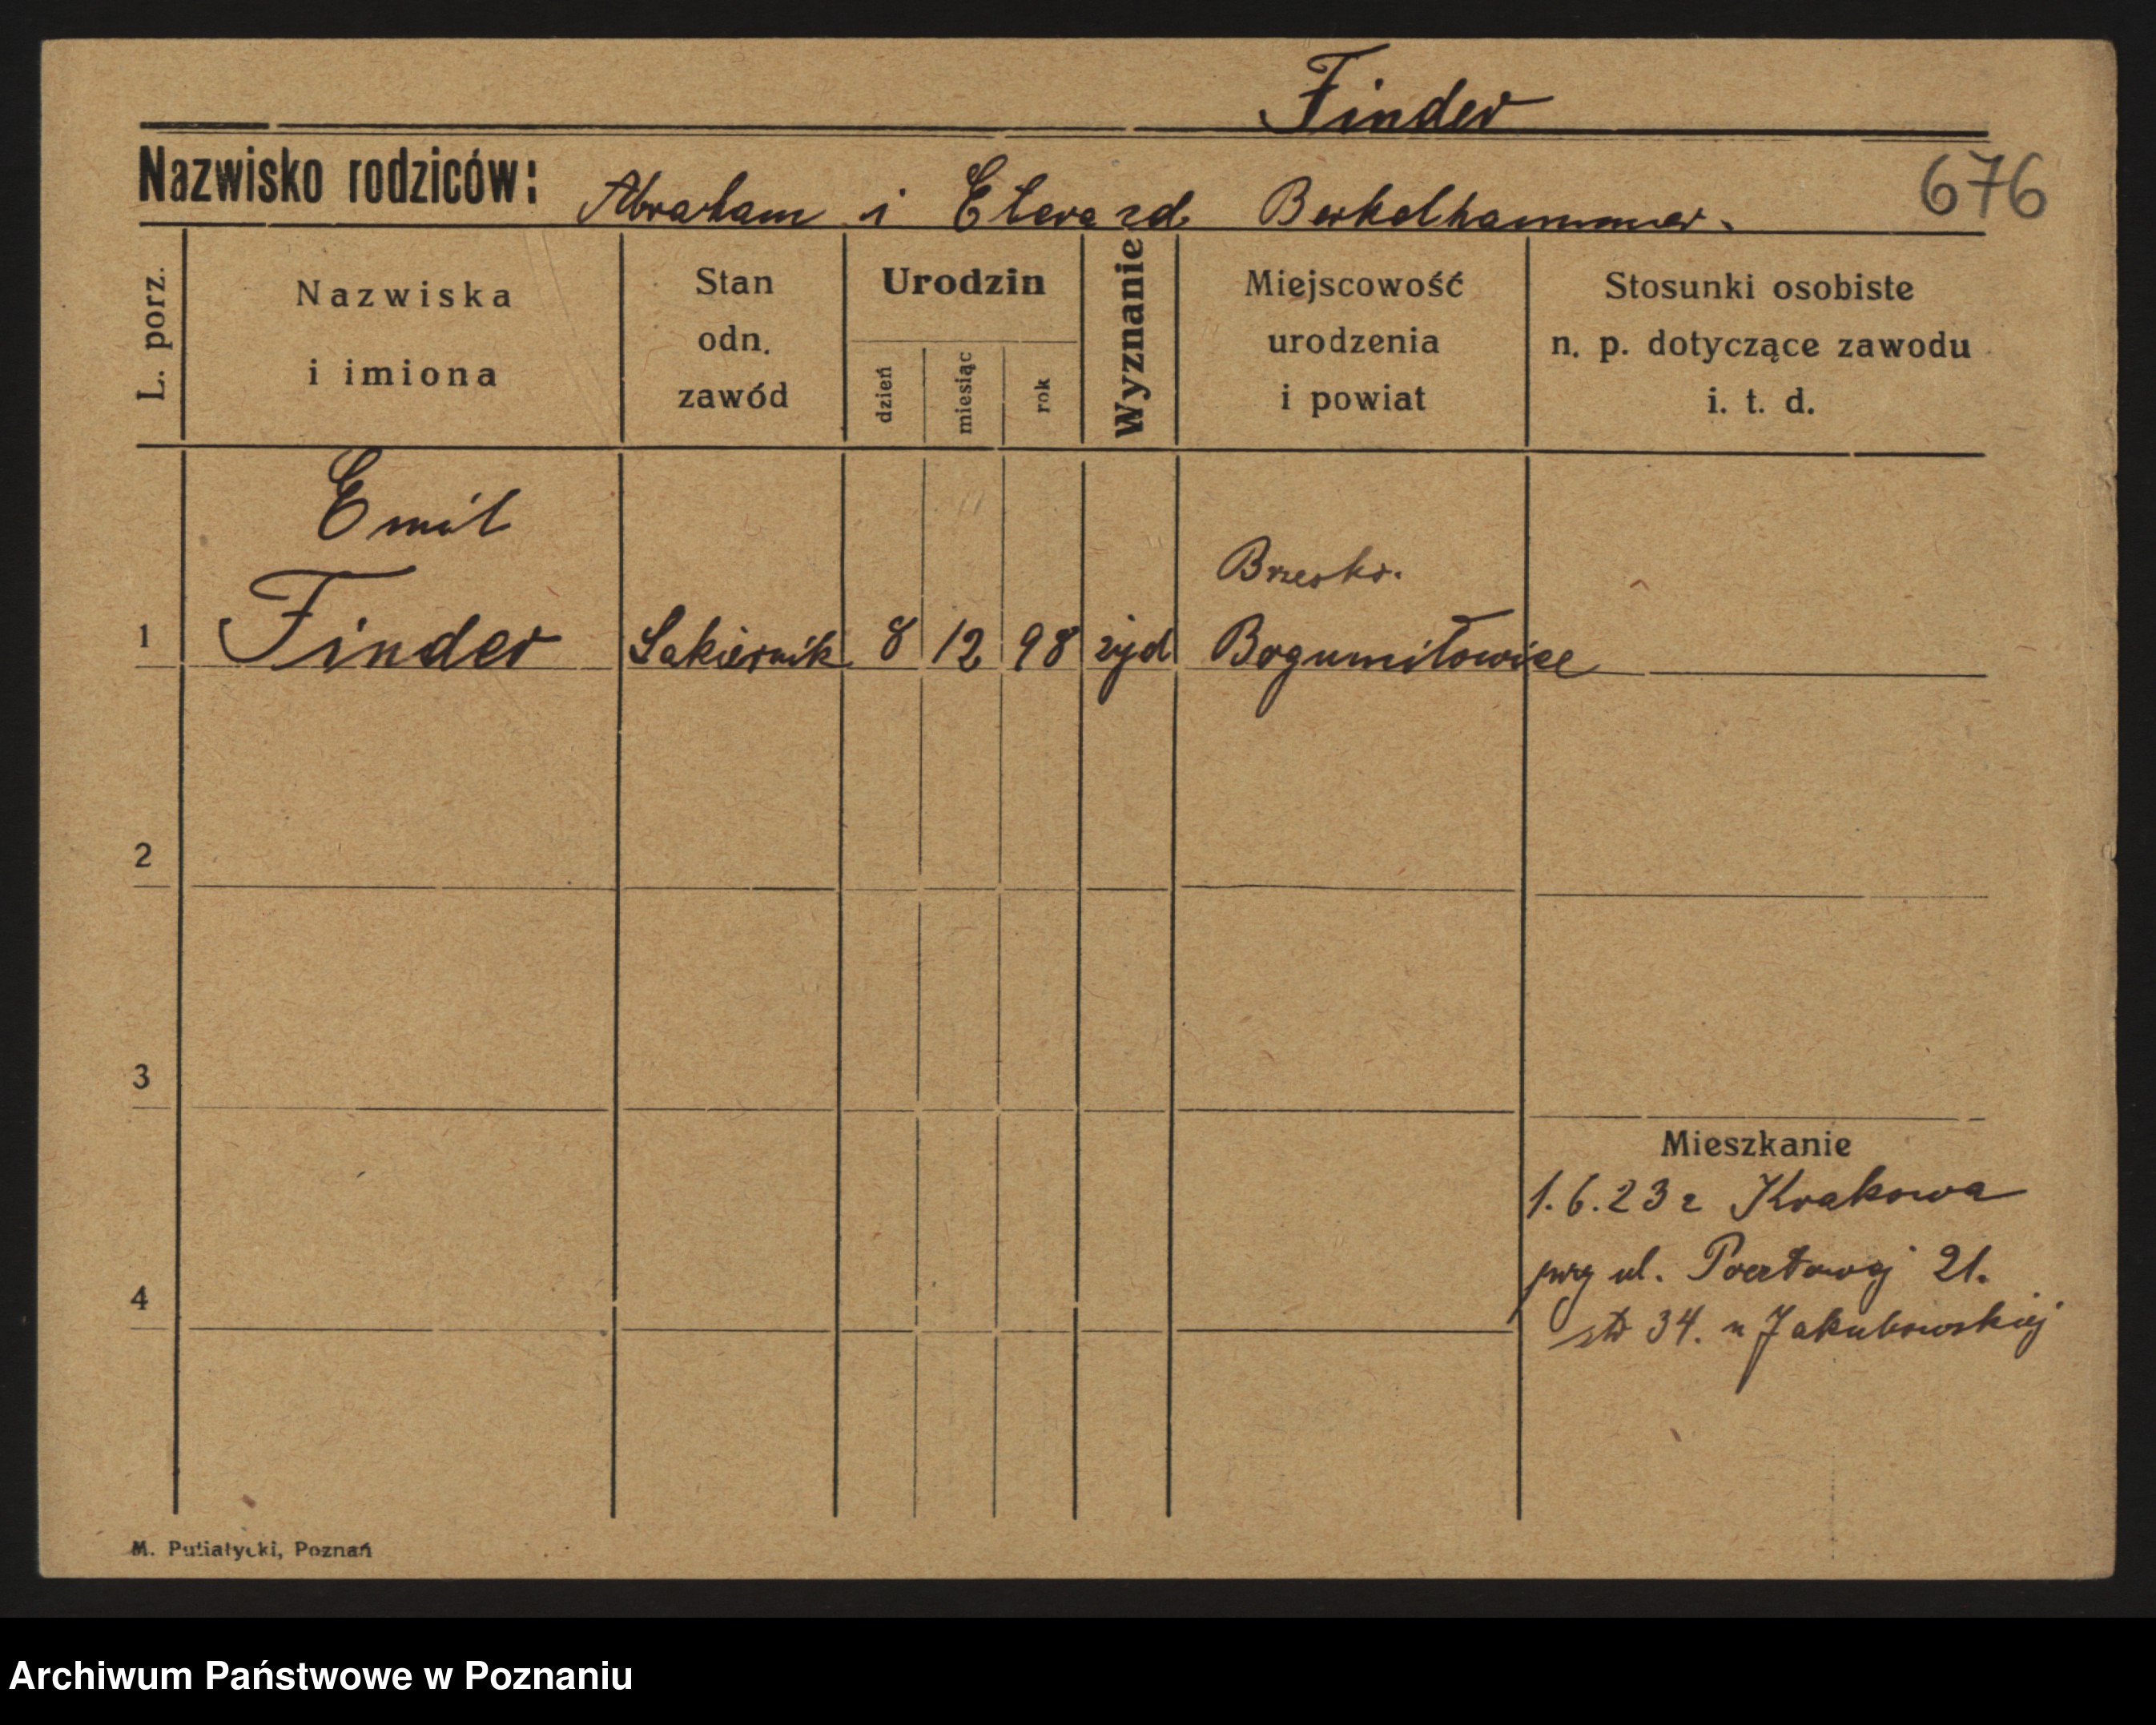 Finder
Nazwisko rodziców: Abraham i zd. Berkelhammer.
676
L. porz.
Nazwiska
i imiona
Stan
odn.
zawód
Urodzin
dzień
miesiąc
rok
Wyznanie
Miejscowość
urodzenia
i powiat
Stosunki osobiste
n. p. dotyczące zawodu
i. t. d.
Emil
Brzesko.
1 Finder Lakiernik 8 12 98 żyd Bogumiłowice
2
3
Mieszkanie
1.6.23 z Krakowa
przy ul. Pocztowej 21.
4
34. u Jakubowskiej
M. Putiatycki, Poznań
Archiwum Państwowe w Poznaniu